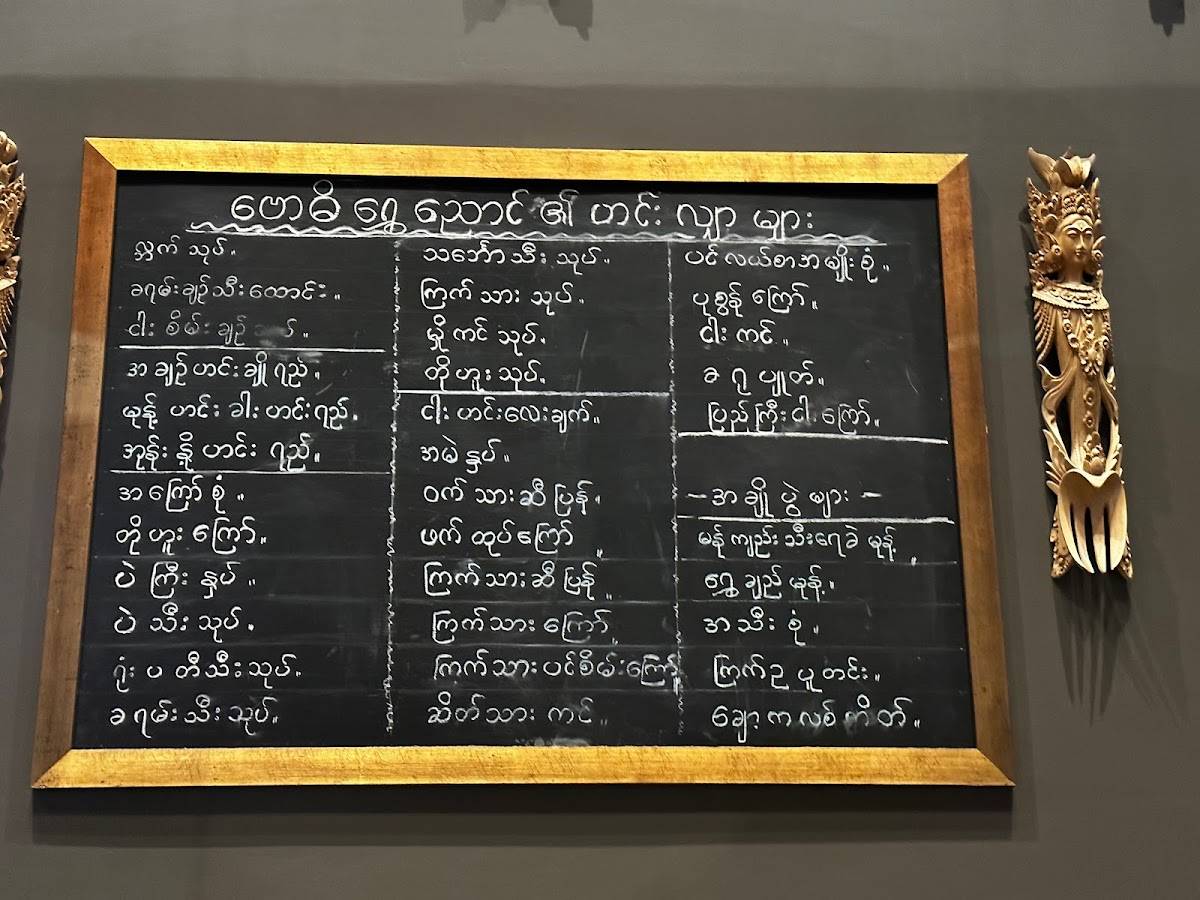 ဗောဓိ ရွှေ ညောင် ၏ ဟင်း လျှာ များ
လွှက် သုပ်။
ခရမ်းချဉ်သီးထောင်း။
ငါး စိမ်း ချဉ်
အ ချဉ် ဟင်း ချို ရည်။
မုန့် ဟင်း ခါး ဟင်းရည်.
အုန်း နို့ ဟင်း ရည်။
အ ကြော် စုံ ။
တို ဟူး ကြော်။
ပဲ ကြီး နှပ် ။
ပဲ သီး သုပ်.
ရုံး ပ တီသီး သုပ်.
ခ ရမ်း သီး သုပ်။
သင်္ဘော သီး သုပ် ။
ကြက် သား သုပ်.
မှို ကင် သုပ်.
တို ဟူး သုပ်.
ငါး ဟင်းလေးချက်။
အမဲ နှပ် ။
ဝက် သား ဆီ ပြန် ။
ဖက် ထုပ် ကြော် ။
ကြက် သား ဆီ ပြန် ။
ကြက် သား ကြော် ။
ကြက်သား ပင်စိမ်းကြော်
ဆိတ်သား ကင်။
ပင် လယ်စာအ မျိုး စုံ ။
ပု စွန် ကြော် ။
ငါး ကင် ။
ခ ရု ပျုတ်။
ပြည်ကြီးငါး ကြော် ။
– အ ချို ပွဲ များ –
မန် ကျည်း သီးရေခဲ မုန့် ။
ရွှေ ချည် မုန့် ။
အ သီး စုံ ။
ကြက်ဥ ပူ တင်း ။
ချော့ က လစ် ကိတ် ။